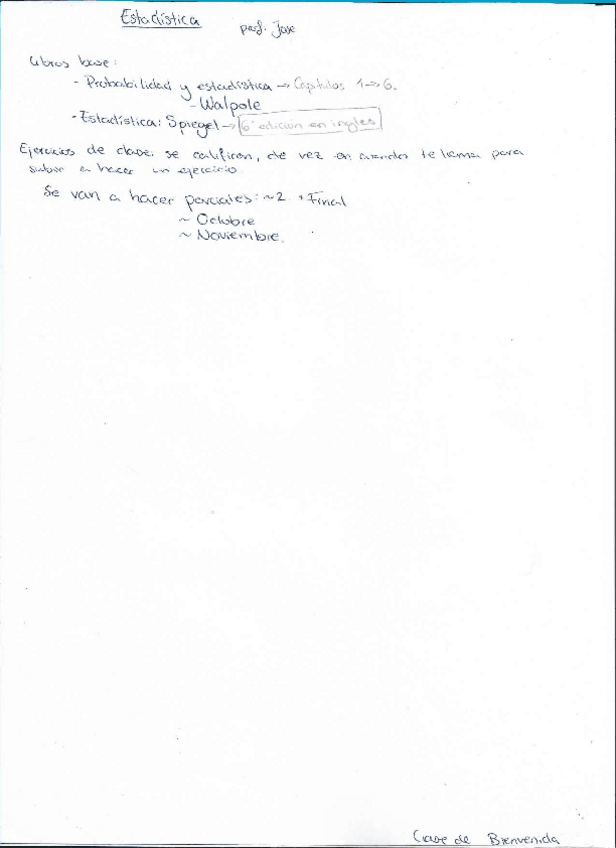 Estadística
prof: Jose
Libros base:
- Probabilidad y estadística → Capítulos 1→6.
- Walpole
- Estadística: Spiegel → 6ª edición en ingles
Ejercicios de clase: se califican, de vez en cuando te llama para
subir a hacer un ejercicio.
Se van a hacer parciales: ~2 + Final
~ Octubre
~ Noviembre.
Clase de Bienvenida